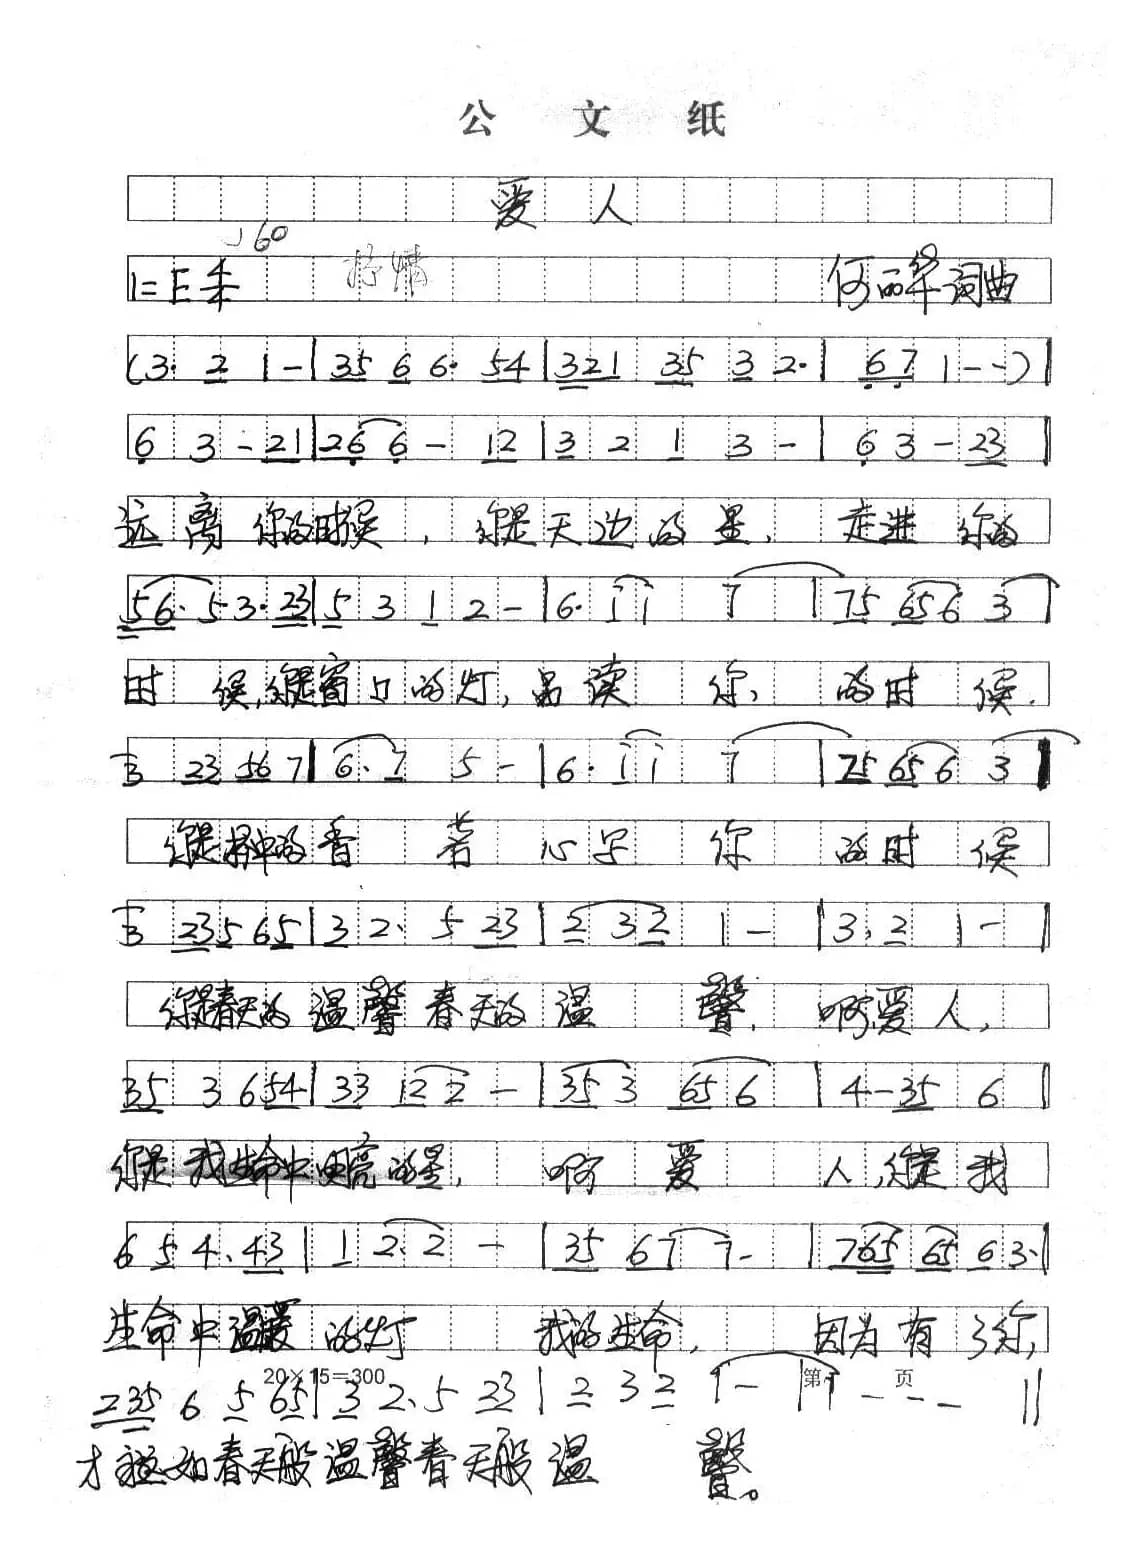 公 文 纸
爱 人
♩60
1=E 4/4 抒情 何丽华词曲
(3· 2 1 - | 35 6 6· 54 | 321 35 3 2· | 67 1 - - )|
6 3 - 21 | 26 6 - 12 | 3 2 1 3 - | 6 3 - 23 |
远离你的时候，你是天边的星，走进你的
56· 53· 23 | 5 3 1 2 - | 6· i i 7 | 75 65 6 3 |
时候，你是窗口的灯，品读你，的时候．
3 23 56 7 | 6· 7 5 - | 6· i i 7 | 75 65 6 3 |
你是中的香茗心 你的时候
3 23 5 65 | 3 2· 5 23 | 2 3 2 1 - | 3· 2 1 - |
你是春天的温馨春天的温馨．啊，爱人，
35 3 6 54 | 33 12 2 - | 35 3 65 6 | 4 - 35 6 |
你是我生命中更亮的星，啊爱人，你是我
6 5 4· 43 | 1 2· 2 - | 35 67 7 - | 765 65 6 3· |
生命中温暖的灯 我的生命，因为有了你，
20×15=300 第 页
235 6 5 65 | 3 2· 5 23 | 2 3 2 1 - | 1 - - - ||
才如春天般温馨春天般温馨。